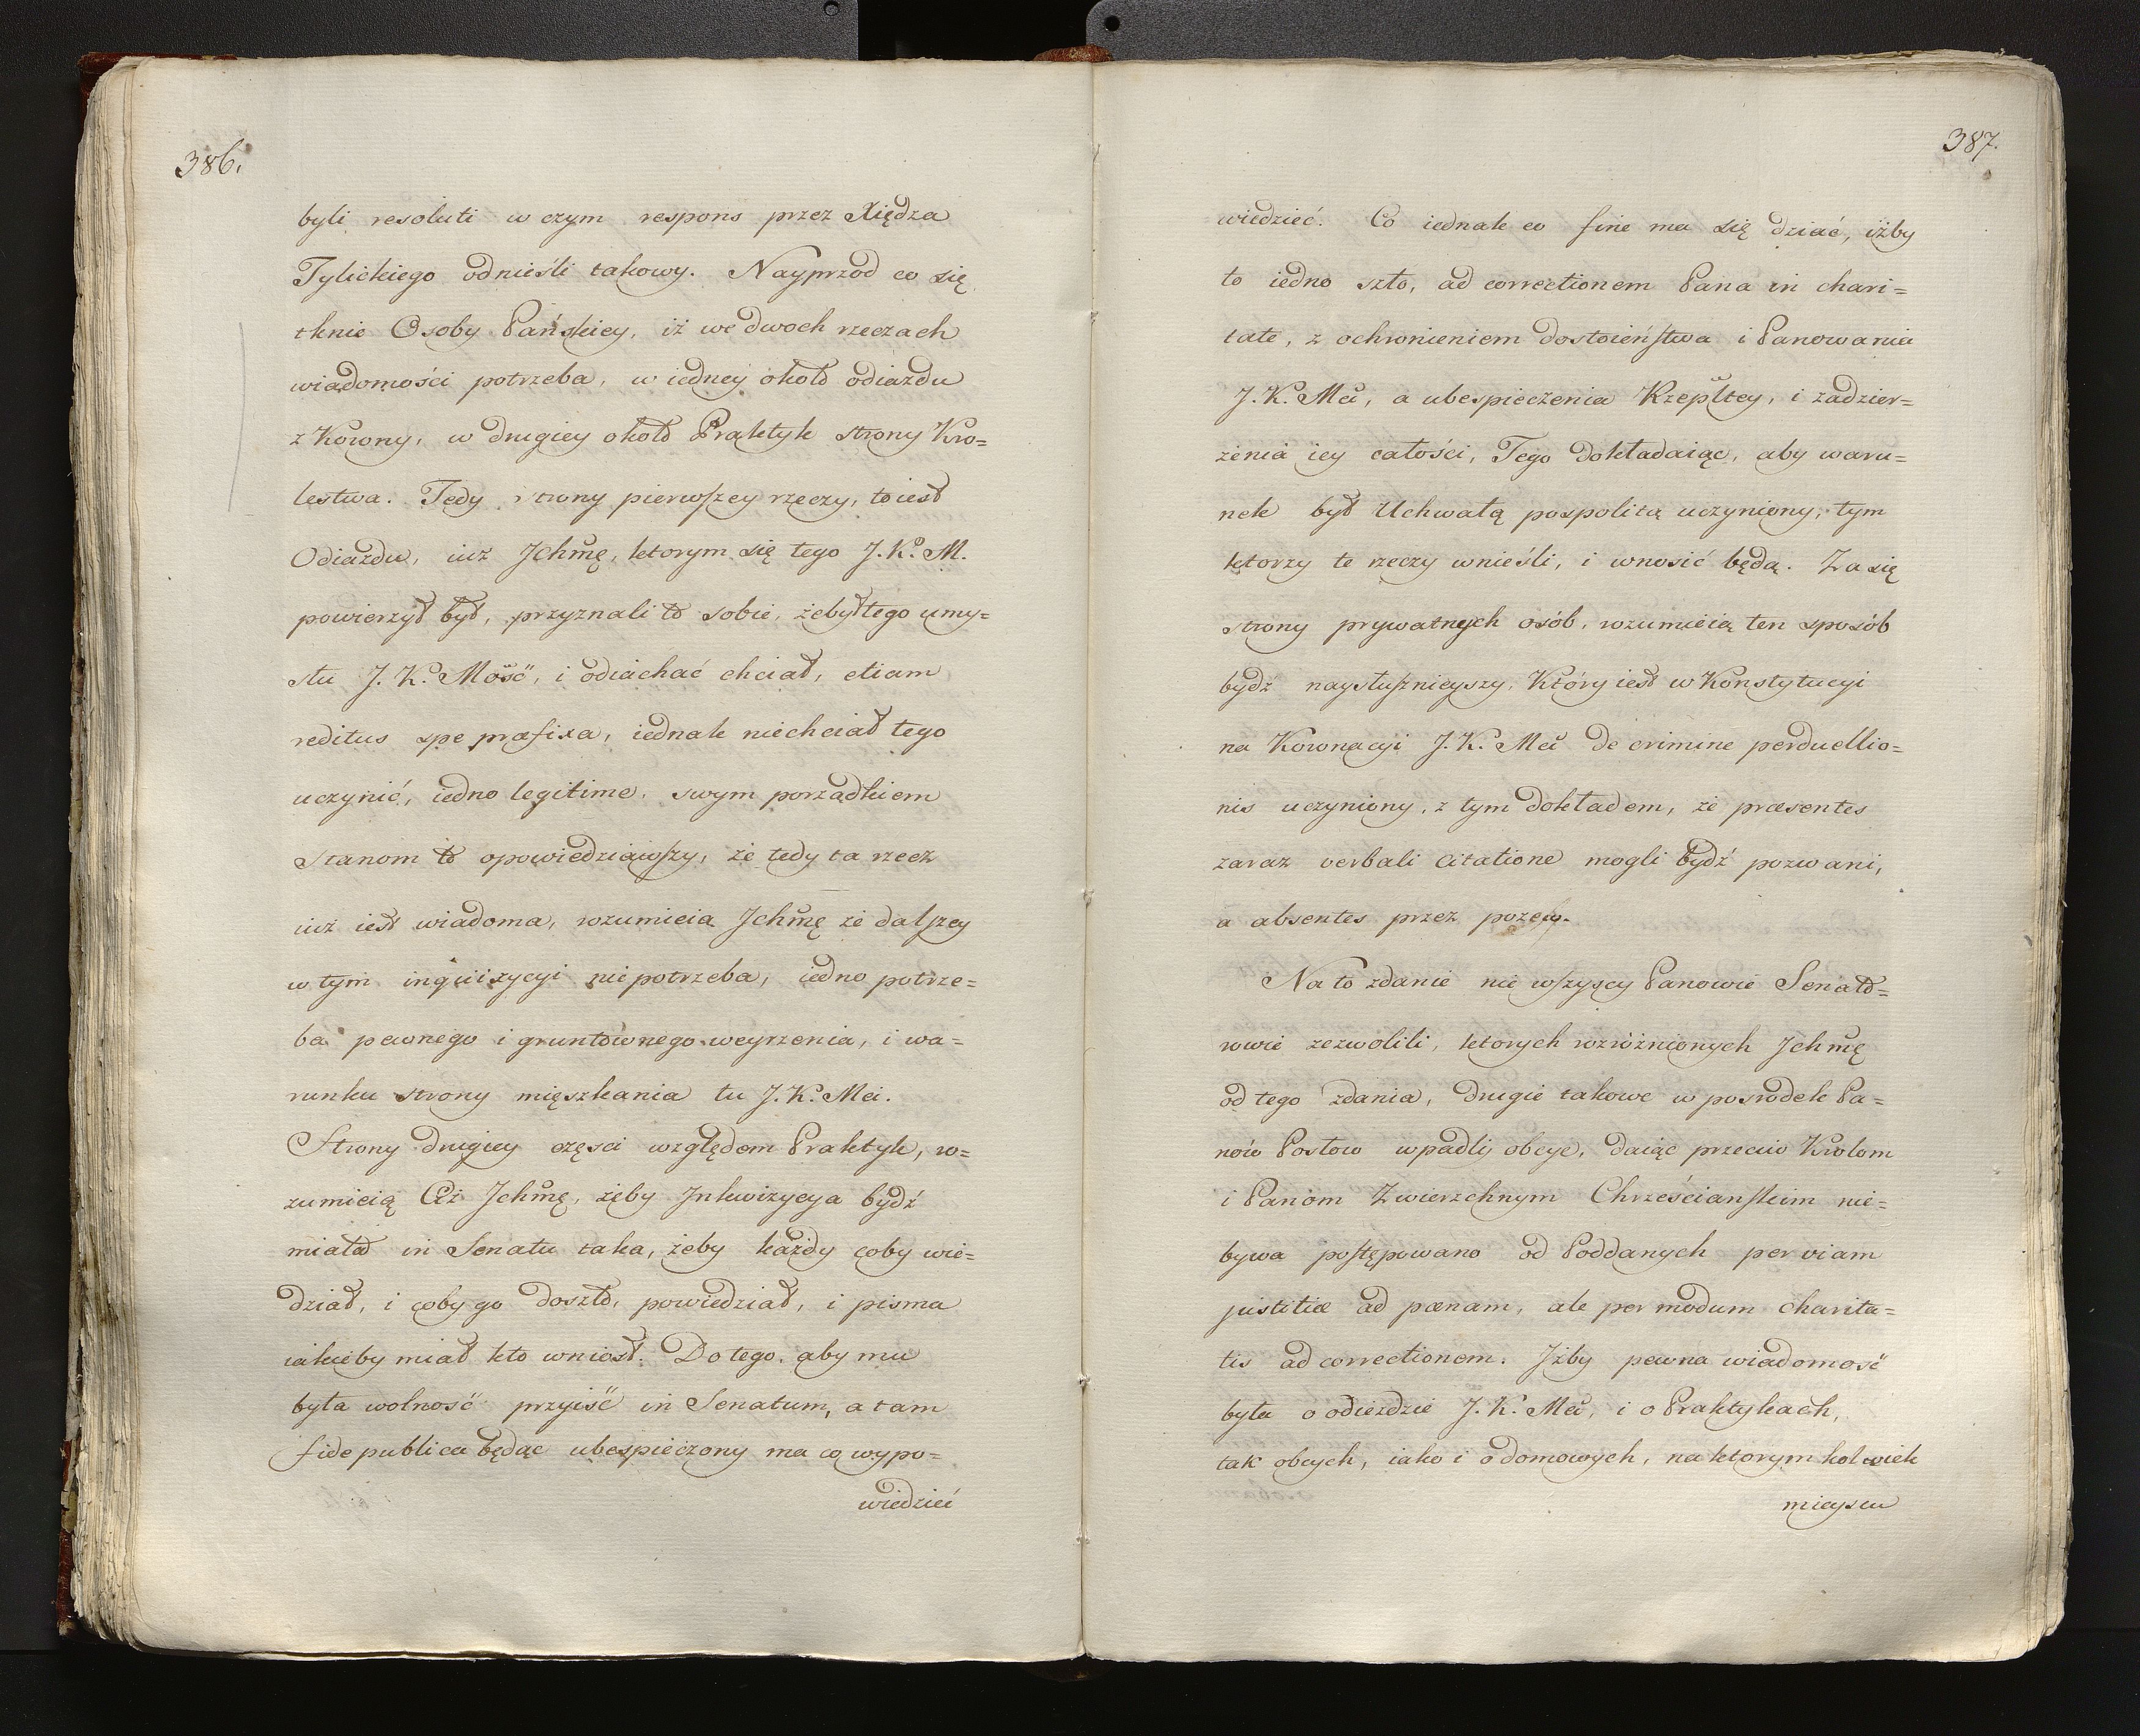 386.
byli resoluti w czym respons przez Xiędza
Tylickiego odnieśli takowy. Nayprzod co się
tknie Osoby Pańskiey, iż we dwoch rzeczach
wiadomości potrzeba, w iedney około odiazdu
z Korony, w drugiey około Praktyk strony Kro=
lestwa. Tedy strony pierwszey rzeczy, to iest
Odiazdu, iuż Ichmę, ktorym się tego J. K. M.
powierzył był, przyznali to sobie, że był tego umy=
słu J. K. Mość, i odiachać chciał, etiam
reditus spe præfixa, iednak niechciał tego
uczynić, iedno legitime, swym porządkiem
Stanom to opowiedziawszy, że tedy ta rzecz
iuż iest wiadoma, rozumieią Ichmę że dalszey
w tym inquizycyi nie potrzeba, iedno potrze=
ba pewnego i gruntownego weyrzenia, i wa=
runku strony mięszkania tu J. K. Mci.
Strony drugiey części względem Praktyk, ro=
zumieią Ciż Ichmę, żeby Inkwizycya bydź
miała in Senatu taka, żeby każdy coby wie=
dział, i coby go doszło, powiedział, i pisma
iakieby miał kto wniósł. Do tego, aby mu
była wolność przyiść in Senatum, a tam
fide publica będąc ubespieczony ma co wypo=
wiedzieć
387.
wiedzieć. Co iednak eo fine ma się dziać, iżby
to iedno szło, ad correctionem Pana in chari=
tate, z ochronieniem dostoieństwa i Panowania
J. K. Mci, a ubespieczenia Rzepltey, i zadzier=
żenia iey całości, Tego dokładaiąc, aby waru=
nek był Uchwałą pospolitą uczyniony, tym
ktorzy te rzeczy wnieśli, i wnosić będą. Zasię
strony prywatnych osób, rozumieią ten sposób
bydź naysłusznieyszy, Który iest w Konstytucyi
na Koronacyi J. K. Mci de crimine perduellio=
nis uczyniony, z tym dokładem, że præsentes
zaraz verbali citatione mogli bydź pozwani,
a absentes przez pozew.
Na to zdanie nie wszyscy Panowie Senato=
rowie zezwolili, ktorych rozróżnionych Ichmę
od tego zdania, drugie takowe w posrodek Pa=
nów Posłow wpadli obcye, daiąc przeciw Krolom
i Panom Zwierzchnym Chrześcianskim nie=
bywa postępowano od Poddanych per viam
justitiæ ad pœnam, ale per modum charita=
tis ad correctionem. Iżby pewna wiadomość
była o odieździe J. K. Mci, i o Praktykach,
tak obcych, iako i o domowych, na ktorym kolwiek
mieyscu